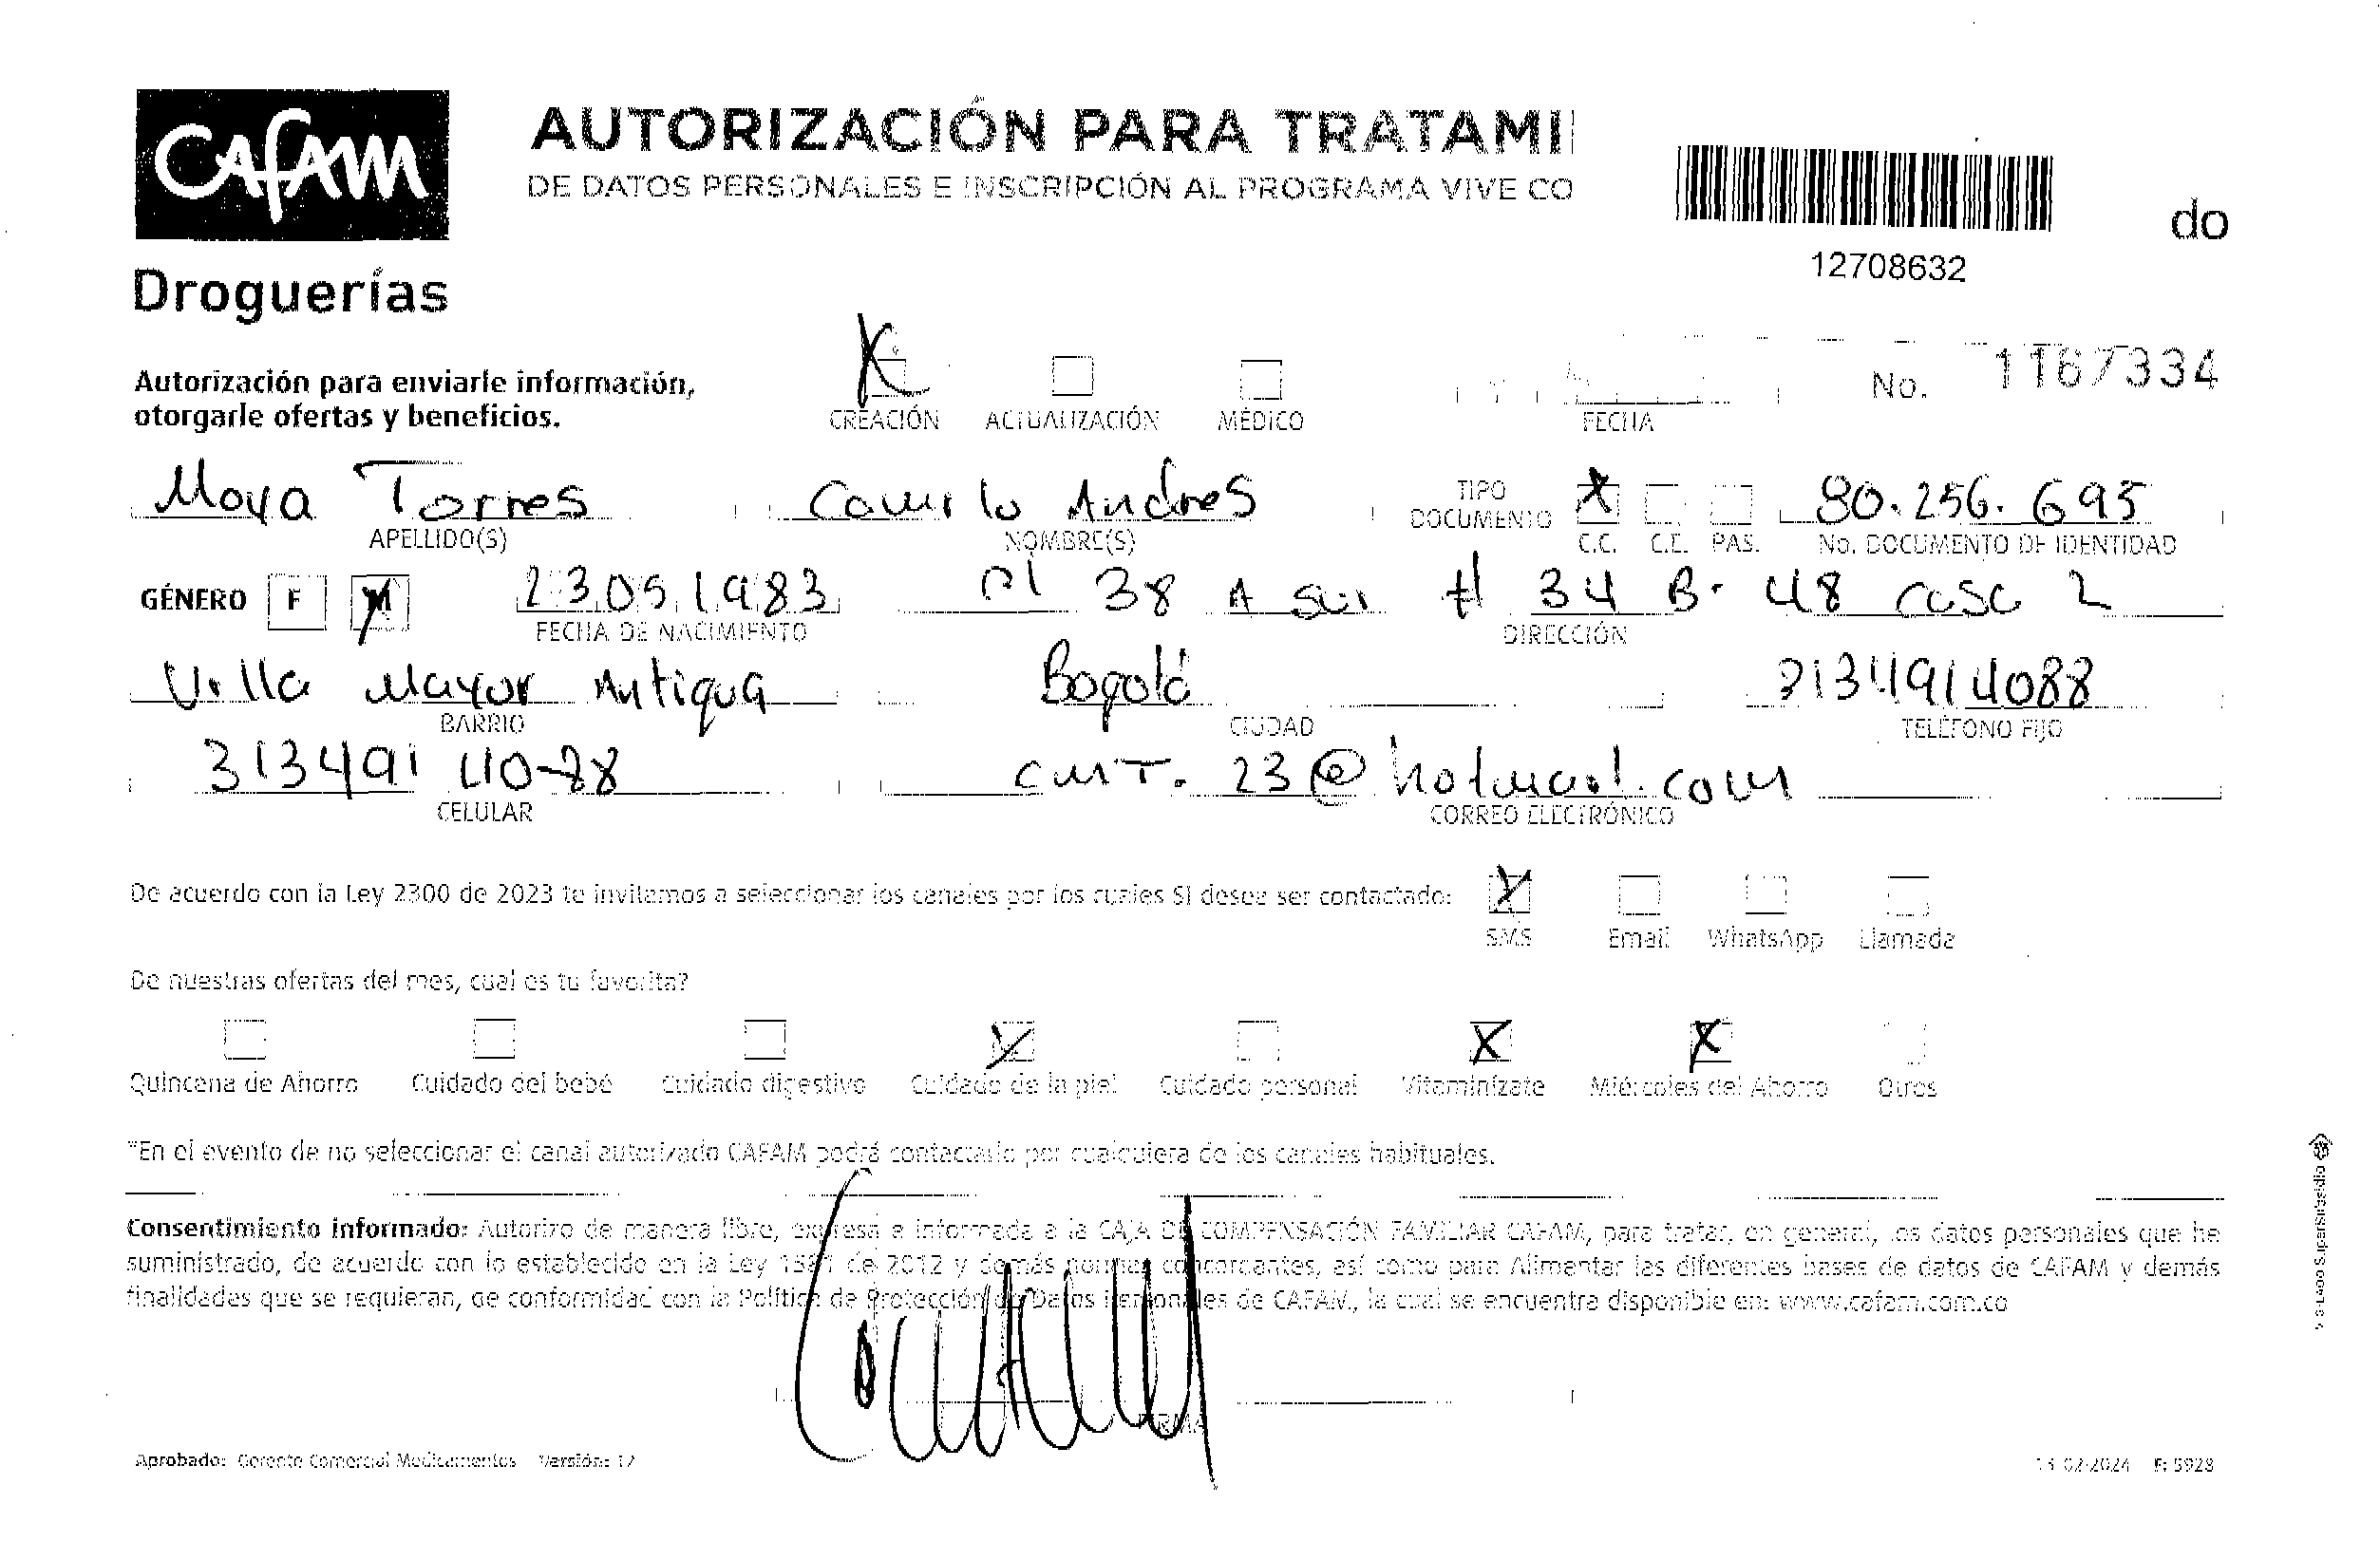 CAFAM
Droguerías
AUTORIZACIÓN PARA TRATAMI
DE DATOS PERSONALES E INSCRIPCIÓN AL PROGRAMA VIVE CO
do
12708632
Autorización para enviarle información,
otorgarle ofertas y beneficios.
CREACIÓN ACTUALIZACIÓN MÉDICO FECHA No. 1167334
Moya Torres Camilo Andres TIPO DOCUMENTO 80.256.695
APELLIDO(S) NOMBRE(S) C.C. C.E. PAS. No. DOCUMENTO DE IDENTIDAD
GÉNERO F M 23051983 cl 38 A sur # 34 B- 48 casa 2
FECHA DE NACIMIENTO DIRECCIÓN
Villa Mayor Antigua Bogotá 3134914088
BARRIO CIUDAD TELÉFONO FIJO
313491 40-88 cmT.23@hotmail.com
CELULAR CORREO ELECTRÓNICO
De acuerdo con la Ley 2300 de 2023 te invitamos a seleccionar los canales por los cuales SI desea ser contactado:
SMS Email WhatsApp Llamada
De nuestras ofertas del mes, cual es tu favorita?
Quincena de Ahorro Cuidado del bebé Cuidado digestivo Cuidado de la piel Cuidado personal Vitamínízate Miércoles del Ahorro Otros
*En el evento de no seleccionar el canal autorizado CAFAM podrá contactarlo por cualquiera de los canales habituales.
Consentimiento informado: Autorizo de manera libre, expresa e informada a la CAJA DE COMPENSACIÓN FAMILIAR CAFAM, para tratar, en general, los datos personales que he
suministrado, de acuerdo con lo establecido en la Ley 1581 de 2012 y demás normas concordantes, así como para Alimentar las diferentes bases de datos de CAFAM y demás
finalidades que se requieran, de conformidad con la Política de Protección de Datos Personales de CAFAM., la cual se encuentra disponible en: www.cafam.com.co
FIRMA
Aprobado: Gerente Comercial Medicamentos Versión: 12
13-02-2024 F: 5928
VIGILADO Supersubsidio